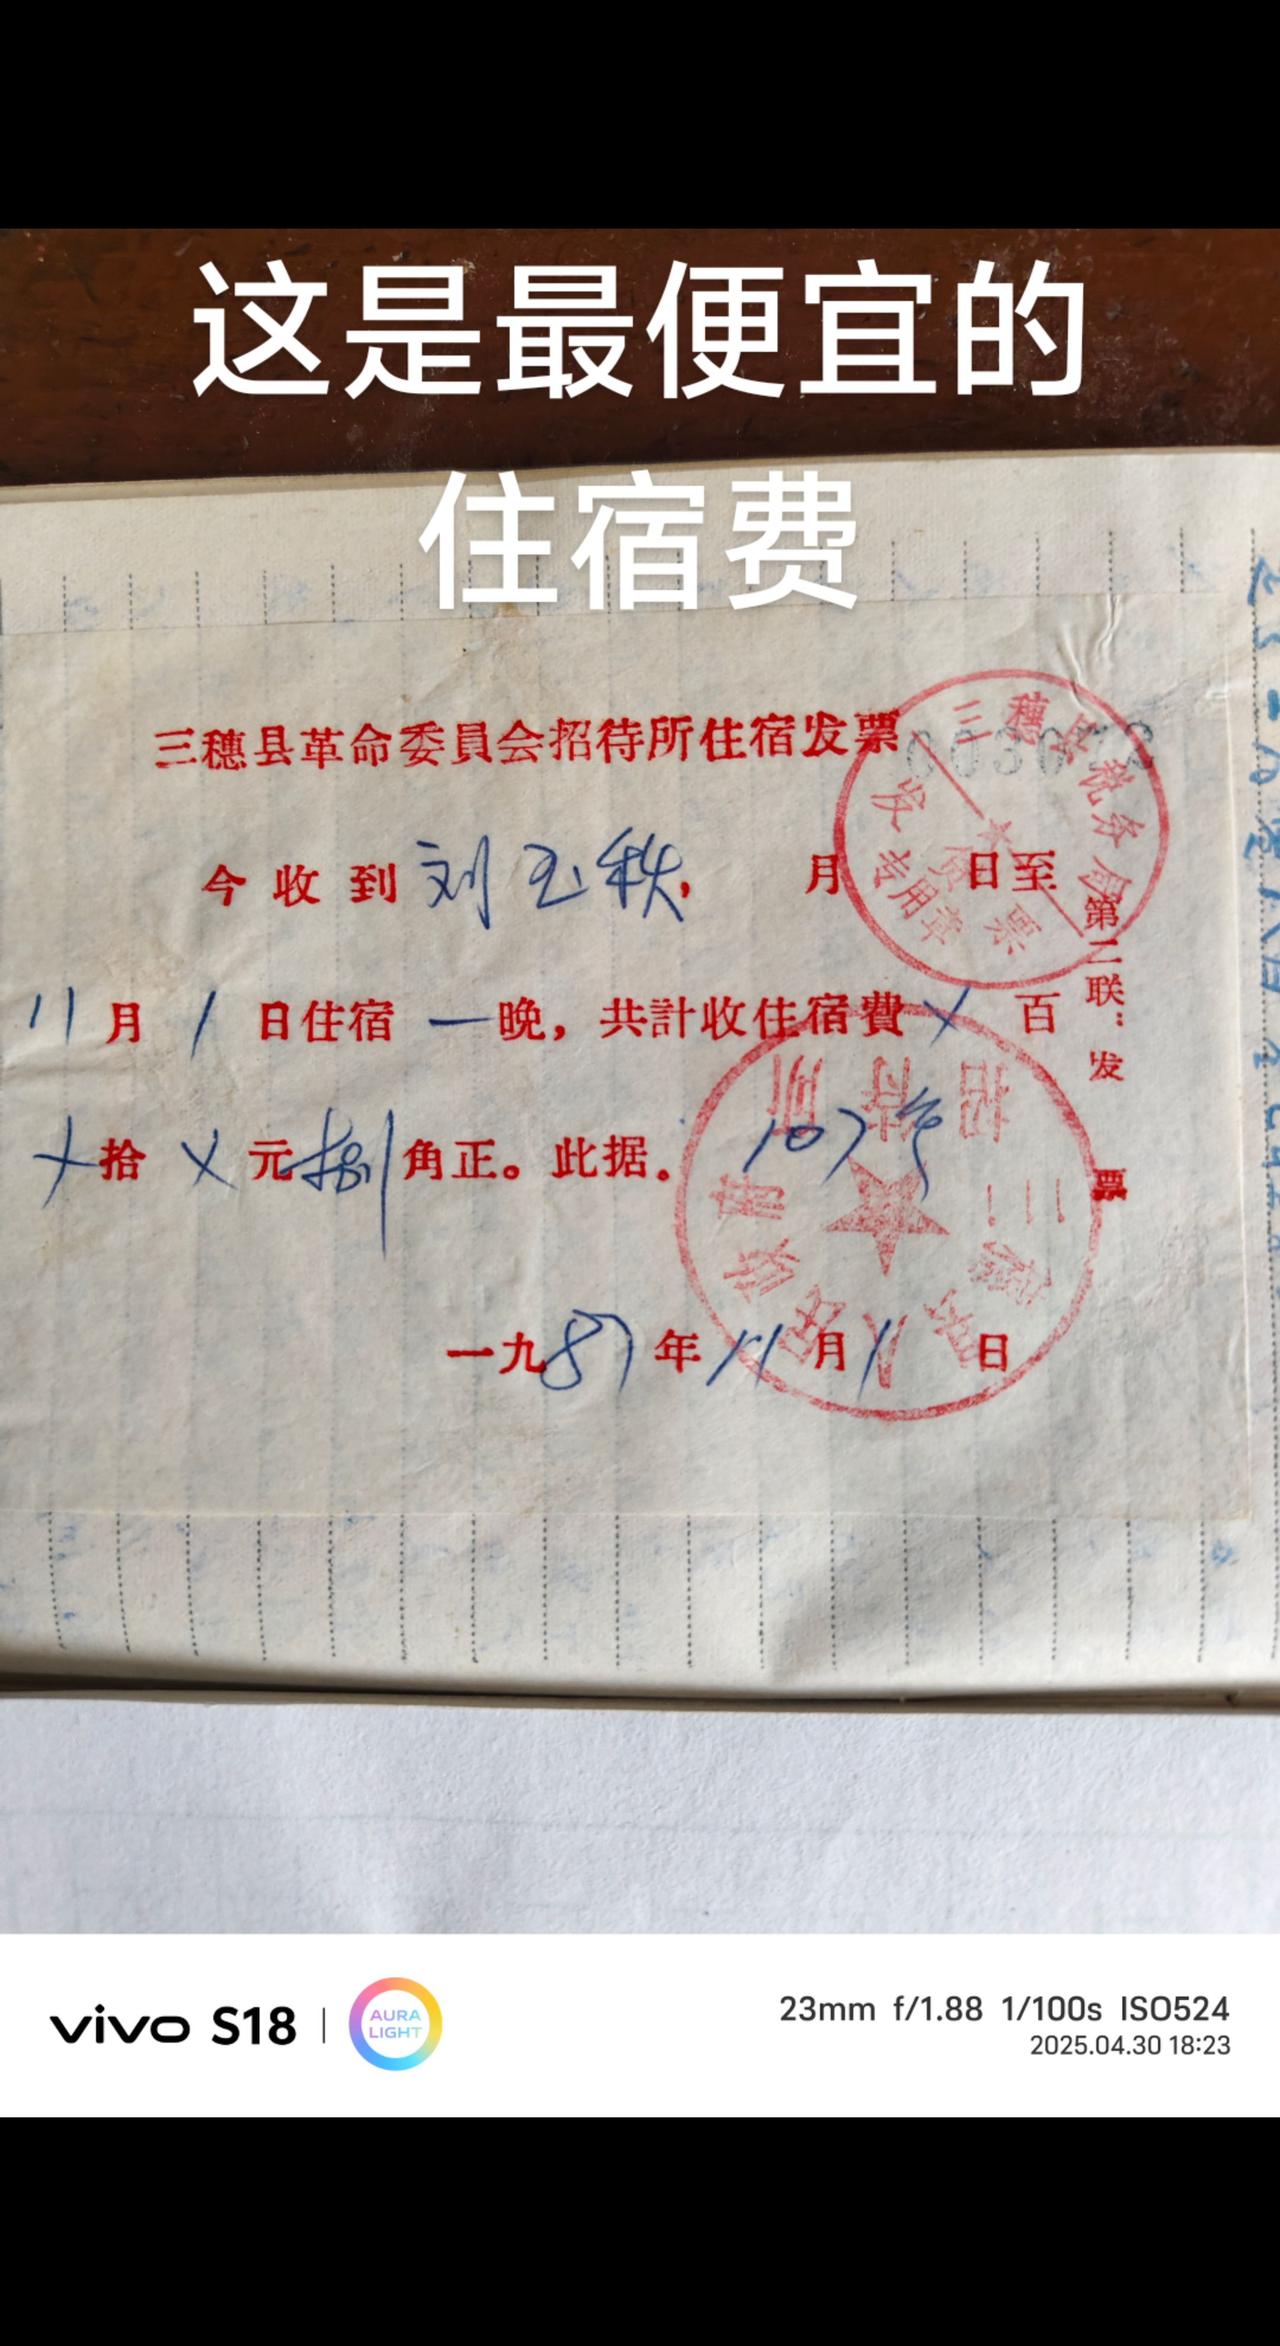 这是最便宜的
住宿费
三穗县革命委員会招待所住宿发票
三穗县税务局
发票
专用章
今收到刘玉秩, 月 日至
11月1日住宿一晚，共計收住宿費X百
X拾X元捌角正。此据。
第二联：发票
三穗县人民政府招待所
一九87年11月1日
vivo S18
AURA LIGHT
23mm f/1.88 1/100s ISO524
2025.04.30 18:23